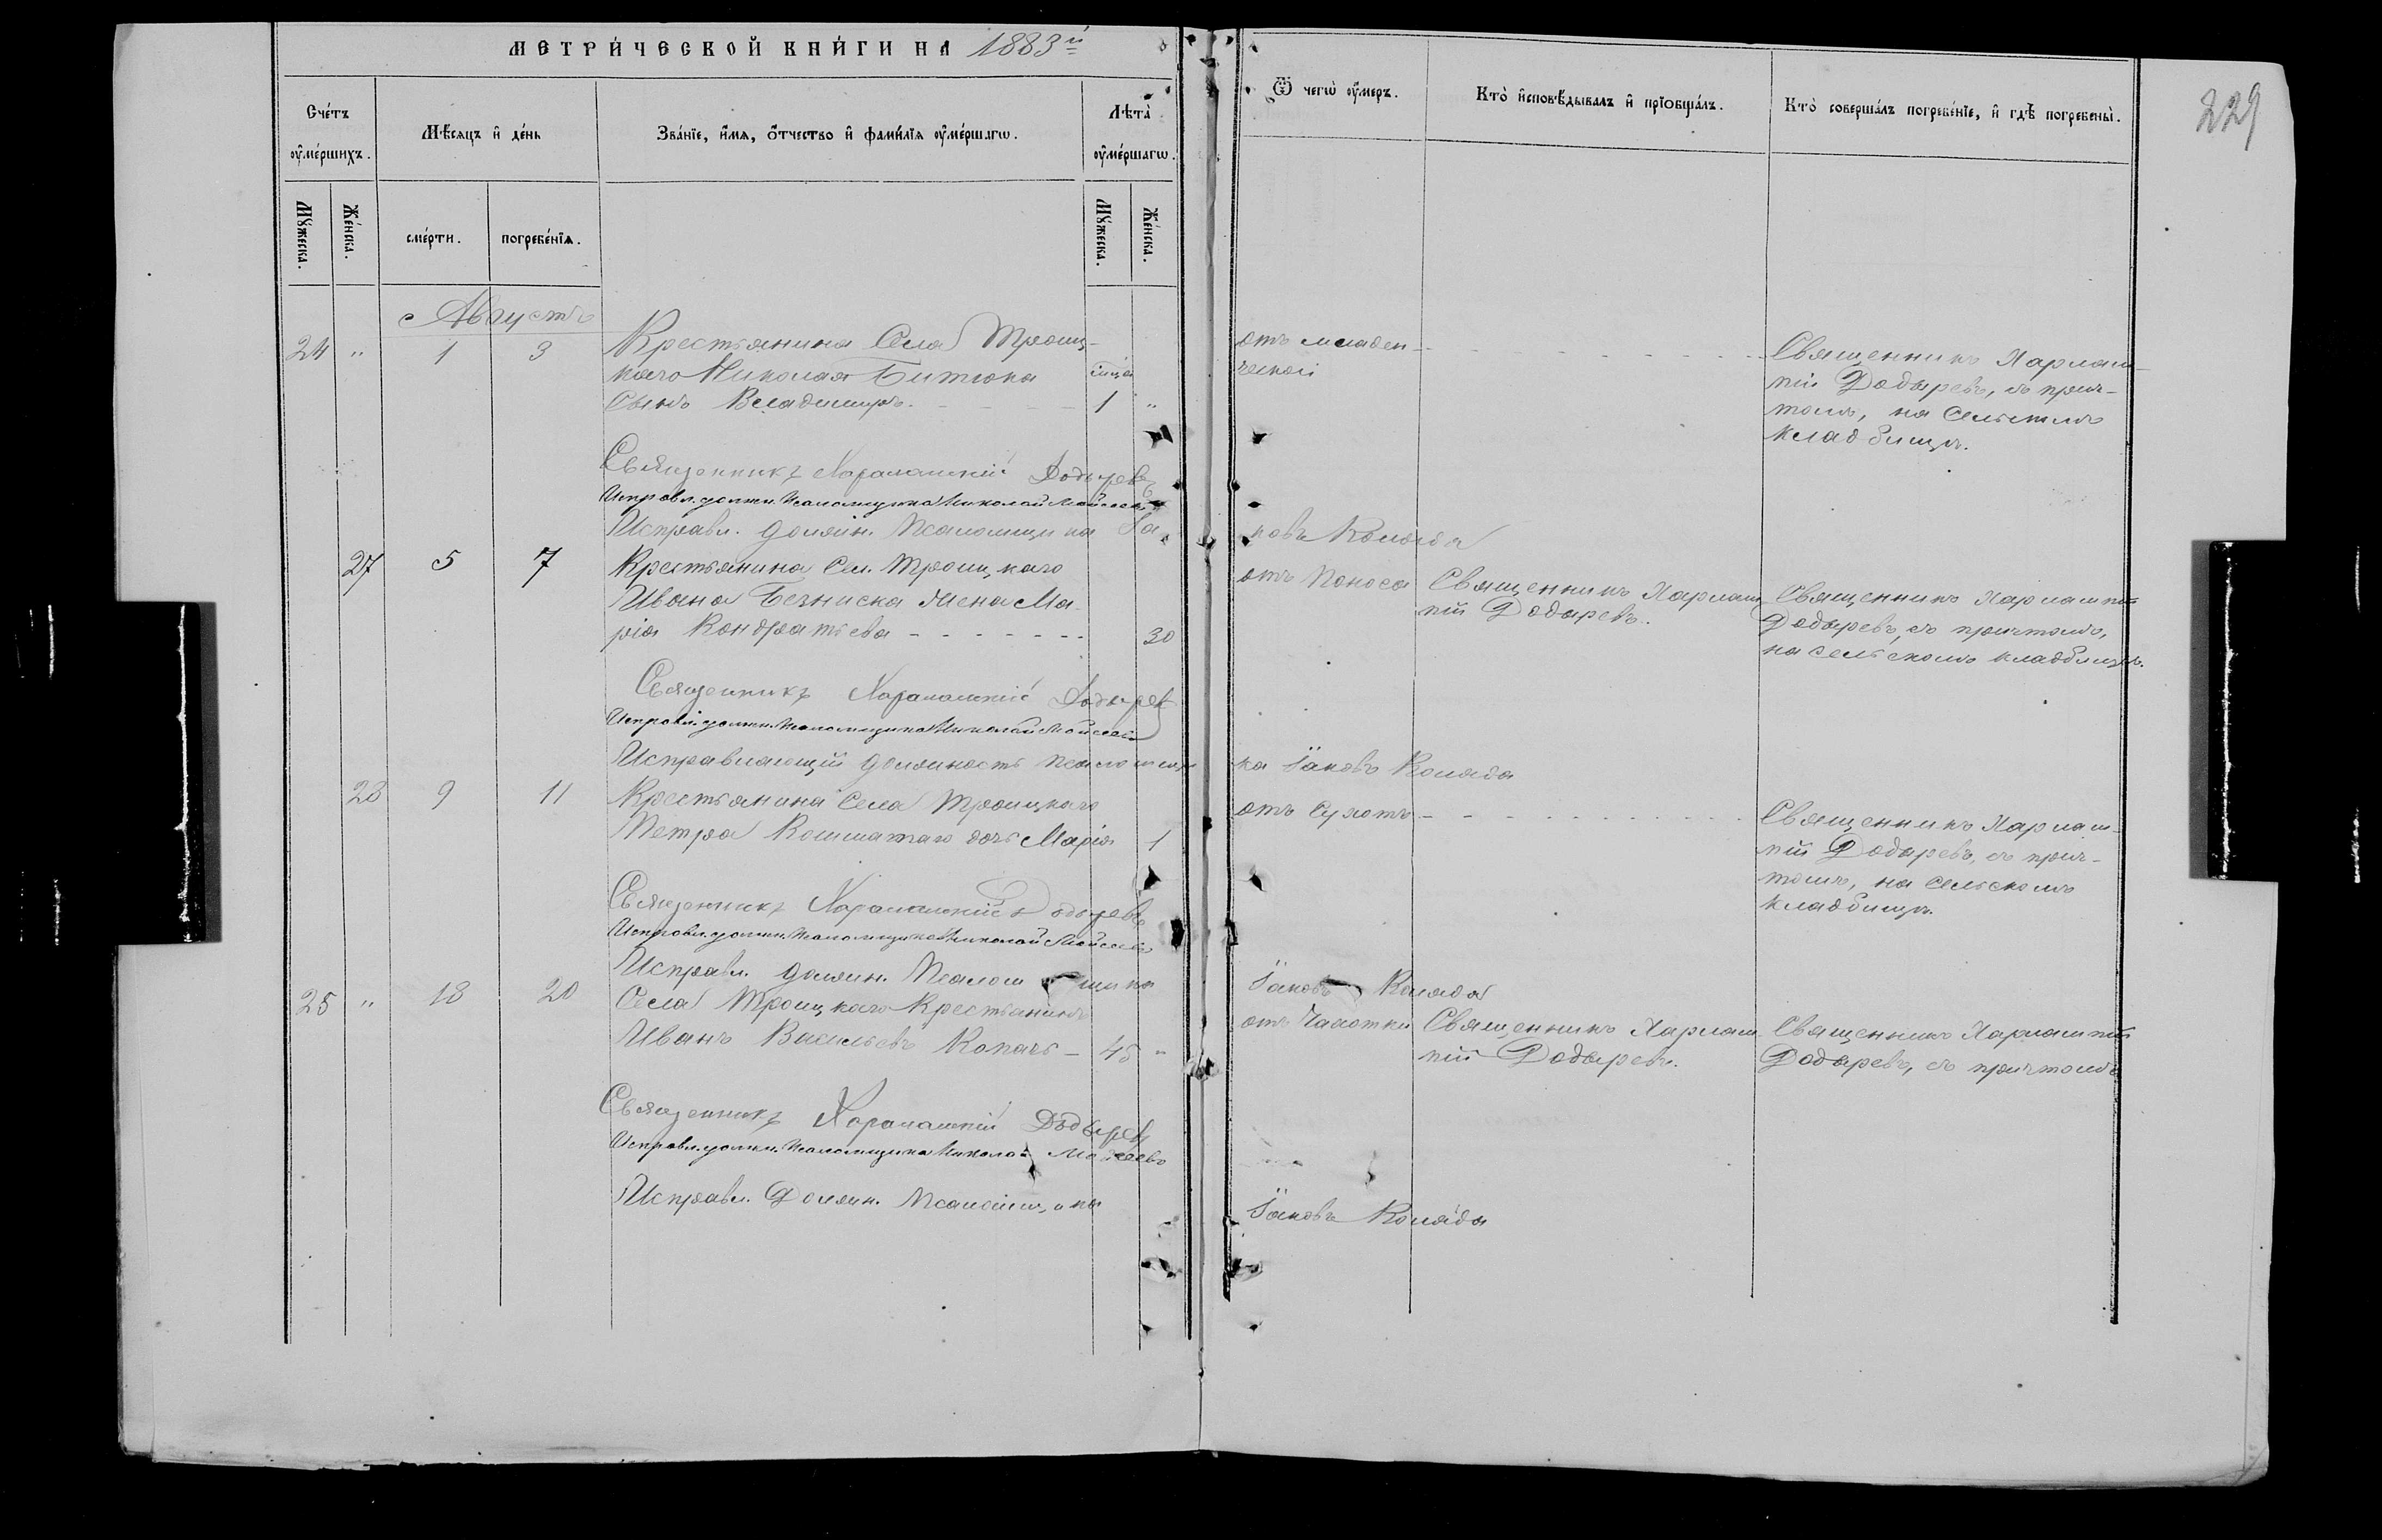 МЕТРИ́ЧЕСКОЙ КНИ́ГИ НА 1883й
229
Сче́тъ ᲂу҆ме́ршихъ.
Мѣ́сяцъ и҆ де́нь
Зва́нїе, и҆́мя, ѻ҆́тчество и҆ фами́лїя ᲂу҆ме́ршагѡ.
Лѣта̀ ᲂу҆ме́ршагѡ.
Ѿ чегѡ̀ ᲂу҆́меръ.
Кто̀ и҆сповѣ́дывалъ и҆ прїобща́лъ.
Кто̀ соверша́лъ погребе́нїе, и҆ гдѣ̀ погребены̀.
Мꙋ́жеска.
Же́нска.
сме́рти.
погребе́нїя.
Мꙋ́жеска.
Же́нска.
Августъ
24 " 1 3 Крестьянина Села Троиц-
каго Николая Битюка
Сынъ Владимиръ. 1 "
отъ младен-
ческой
Священникъ Харлам-
пій Додыревъ, съ прич-
томъ, на Сельскомъ
кладбищѣ.
Священникъ Харалампій Додыревъ
Исправл. должн. Псаломщика Николай Мойсеевъ
Исправл. должн. Псаломщика Іаковъ Коляда
27 5 7 Крестьянина Сел. Троицкаго
Ивана Безниска жена Ма-
рія Кондратьева - - - - - - - 30
отъ Поноса
Священникъ Харлам-
пій Додыревъ.
Священникъ Харлампій
Додыревъ, съ причтомъ,
на сельскомъ кладбищѣ.
Священникъ Харалампій Додыревъ
Исправл. должн. Псаломщика Николай Мойсеевъ
Исправляющій должность псаломщика Іаковъ Коляда
28 9 11 Крестьянина Села Троицкаго
Петра Кошматаго дочь Марія 1
отъ Сухотъ
Священникъ Харлам-
пій Додыревъ, съ прич-
томъ, на сельскомъ
кладбищѣ.
Священникъ Харалампій Додыревъ
Исправл. должн. Псаломщика Николай Мойсеевъ
Исправл. должн. Псаломщика Іаковъ Коляда
25 " 18 20 Села Троицкаго Крестьянинъ
Иванъ Васильевъ Копачъ - 45 "
отъ Чахотки
Священникъ Харлам-
пій Додыревъ.
Священникъ Харлампій
Додыревъ, съ причтомъ
Священникъ Харалампій Додыревъ
Исправл. должн. Псаломщика Николай Мойсеевъ
Исправл. Должн. Псаломщика Іаковъ Коляда